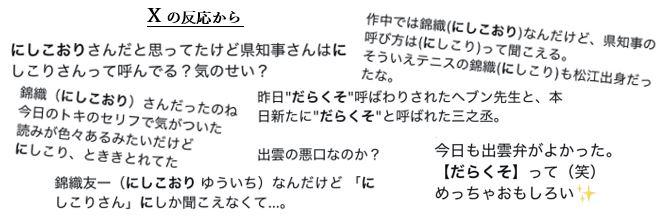 Xの反応から
にしこおりさんだと思ってたけど県知事さんはに
しこりさんって呼んでる？気のせい？
作中では錦織(にしこおり)なんだけど、県知事の
呼び方は(にしこり)って聞こえる。
そういえテニスの錦織(にしこり)も松江出身だっ
たな。
錦織（にしこおり）さんだったのね
今日のトキのセリフで気がついた
読みが色々あるみたいだけど
にしこり、とききとれてた
昨日"だらくそ"呼ばわりされたヘブン先生と、本
日新たに"だらくそ"と呼ばれた三之丞。
出雲の悪口なのか？
今日も出雲弁がよかった。
【だらくそ】って（笑）
めっちゃおもしろい✨
錦織友一（にしこおり ゆういち）なんだけど 「に
しこりさん」にしか聞こえなくて…。